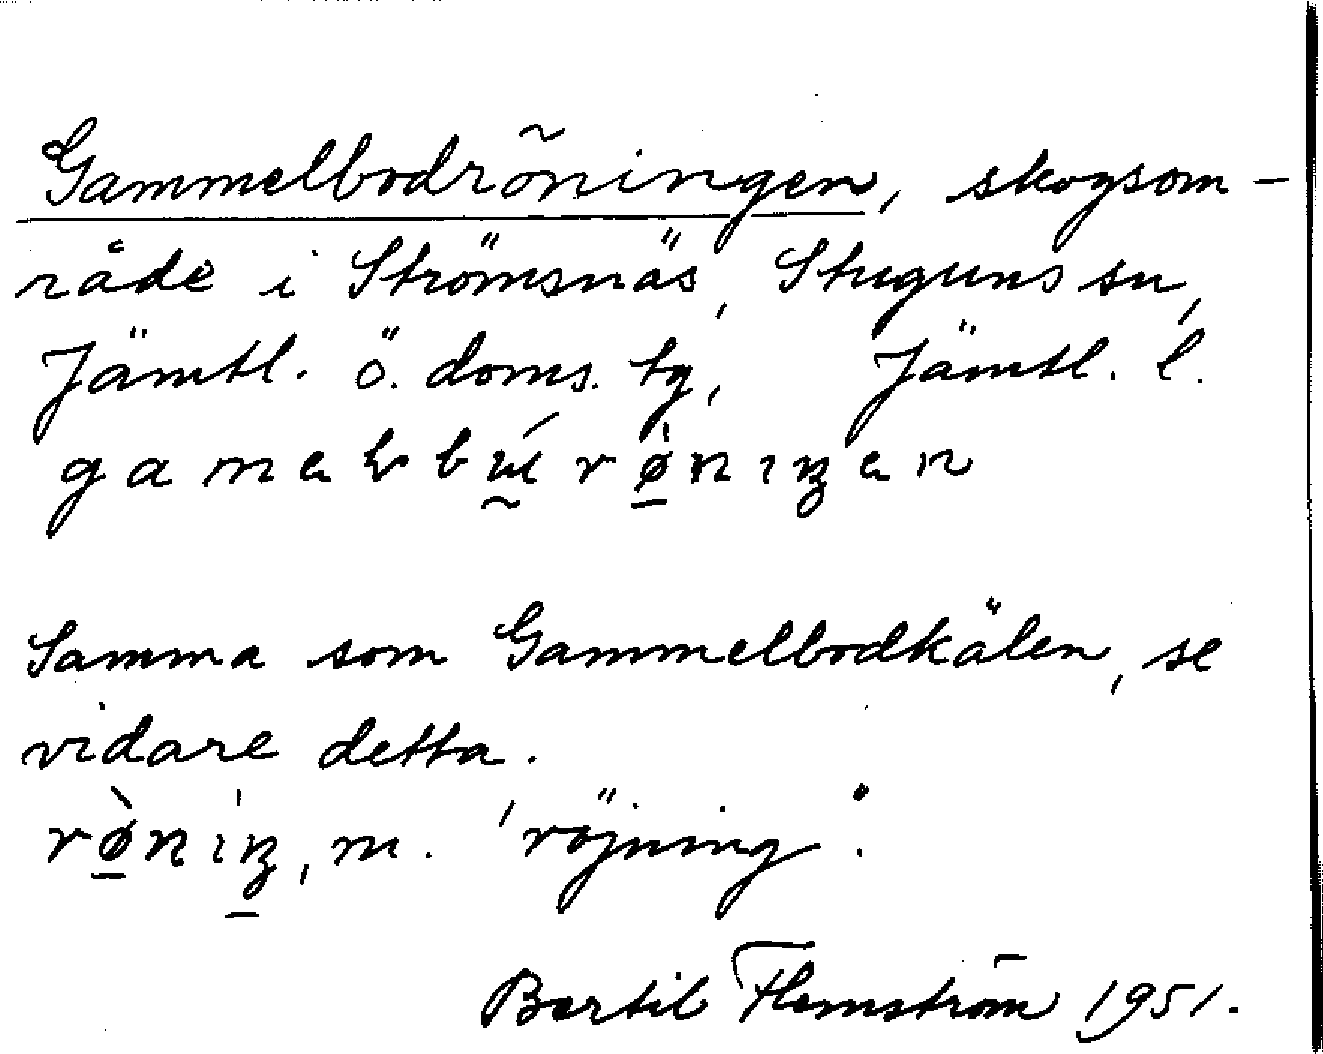 Gammelbodröningen, skogsom-
råde i Strömsnäs, Stuguns sn,
Jämtl. ö. doms. tg, Jämtl. l.
Samma som Gammelbodkälen, se
vidare detta.
rø̀niŋ, m. 'röjning'.
Bertil Flemström 1951.